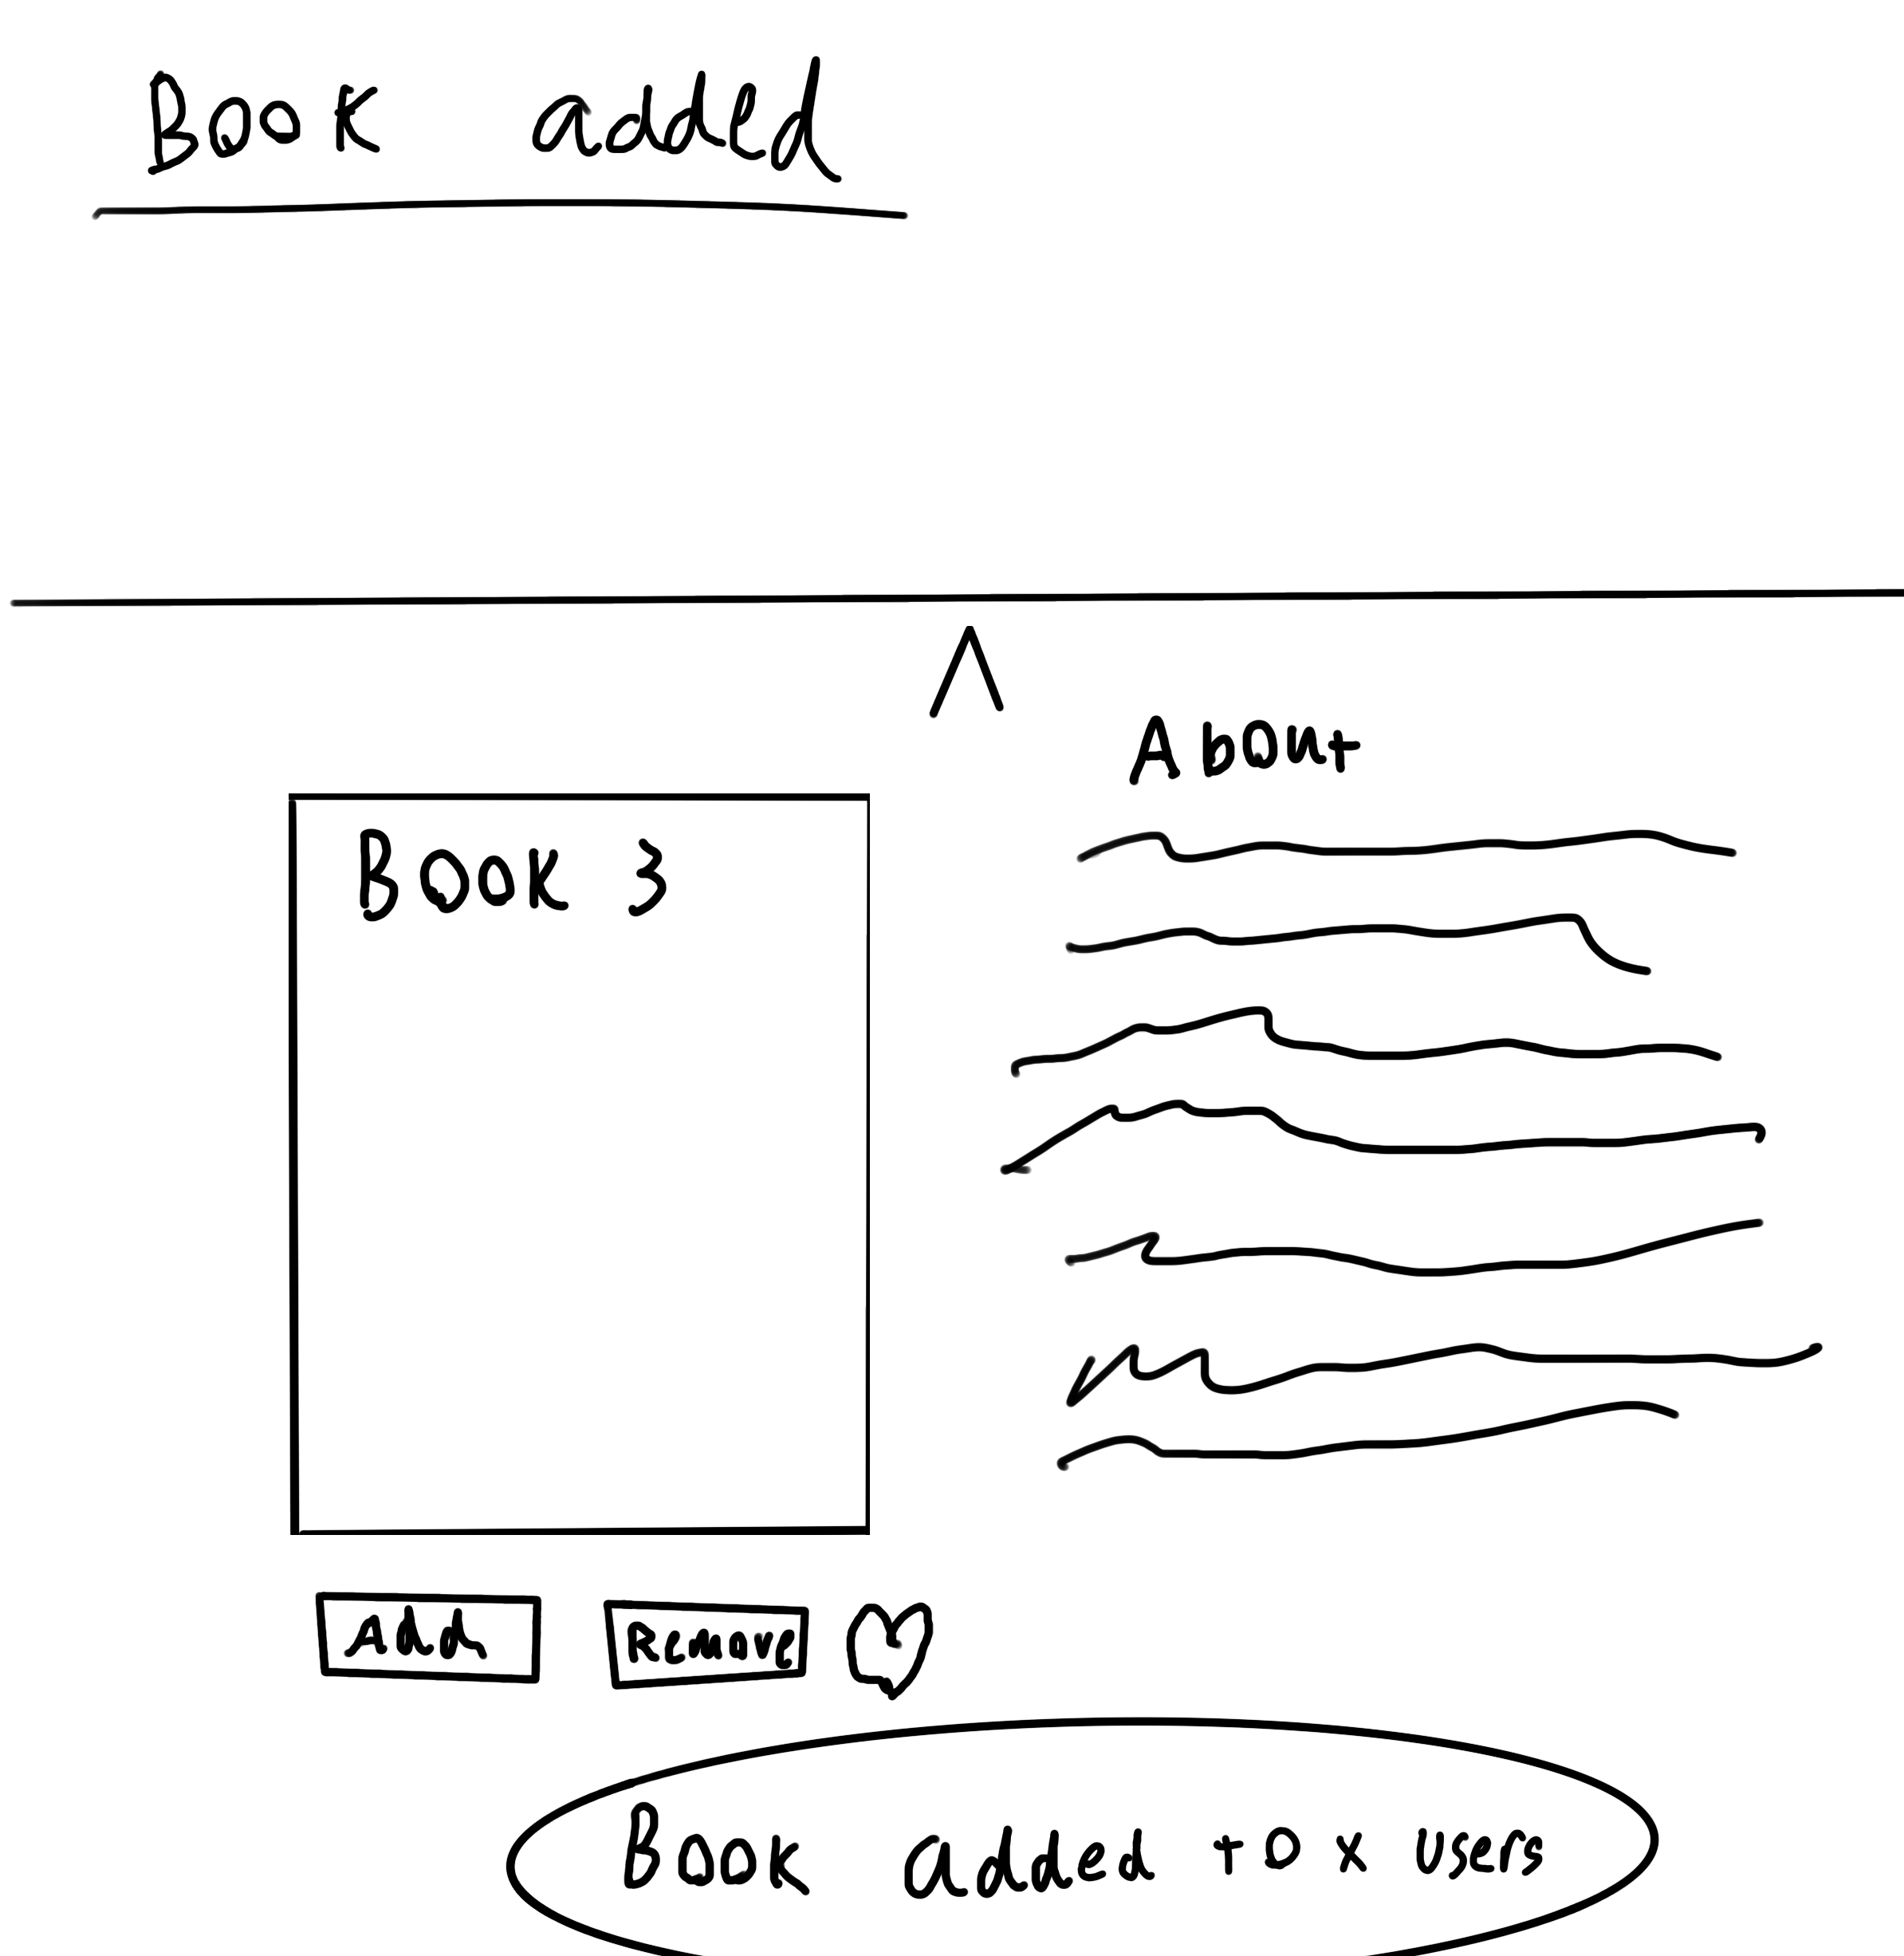 Book added
About
Book 3
Add
Remove
Book added to x users